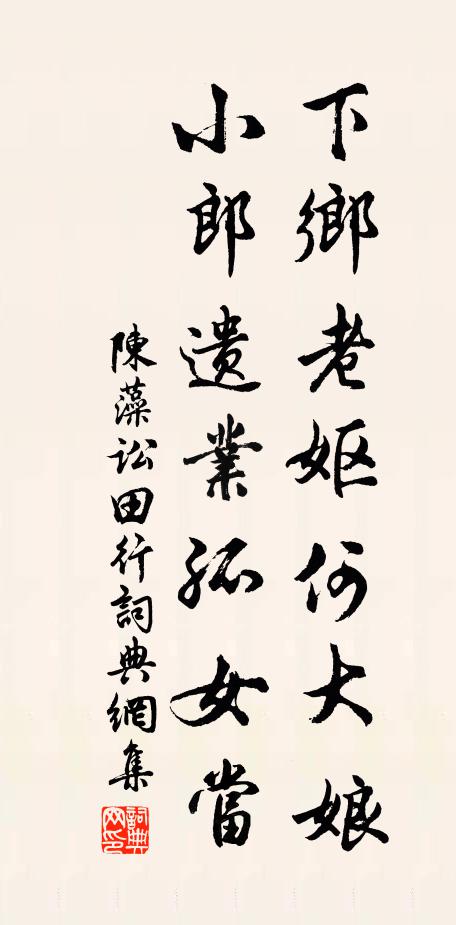 下鄉老嫗何大娘
小郎遺業孤女當
陳藻訟田行詞典網集
詞典网印